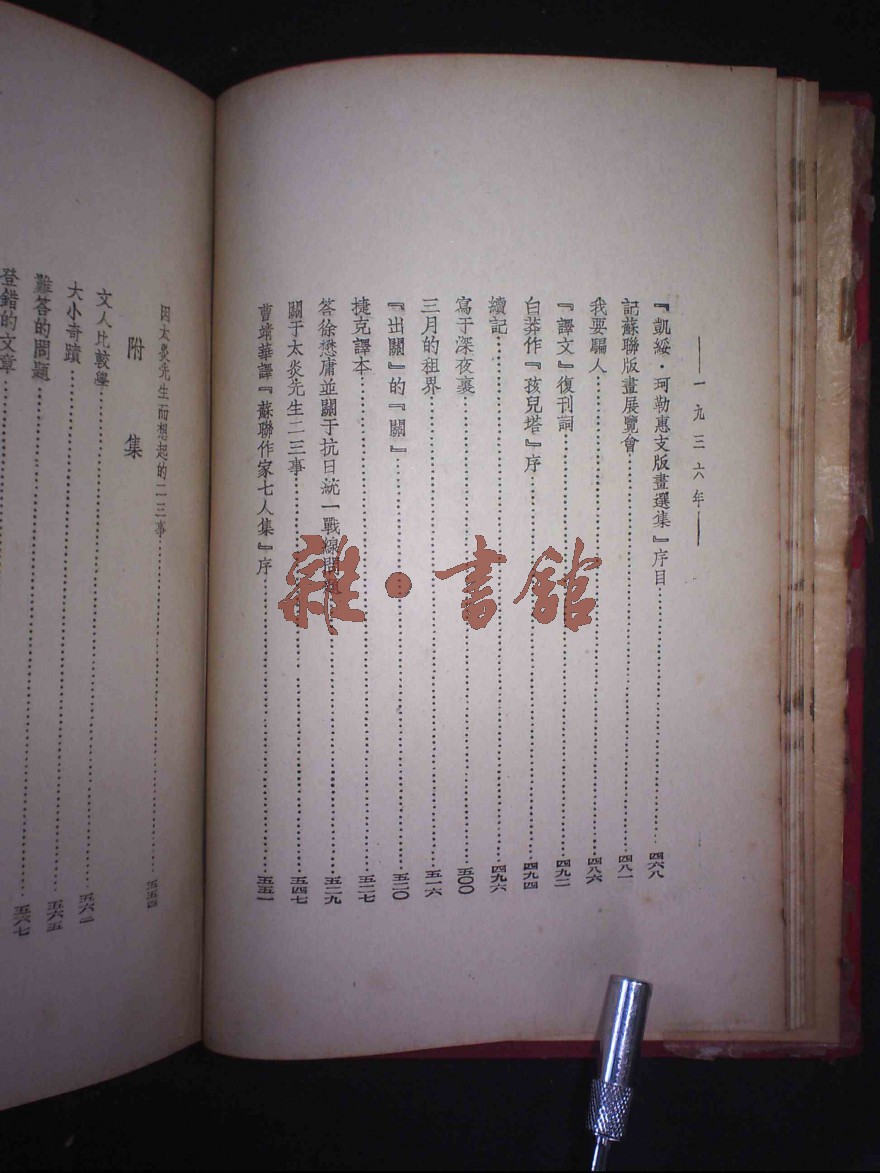 ——一九三六年——
『凱綏·珂勒惠支版畫選集』序目……四六八
記蘇聯版畫展覽會……四八一
我要騙人……四八六
『譯文』復刊詞……四九二
白莽作『孩兒塔』序……四九四
續記……四九六
寫于深夜裏……五〇〇
三月的租界……五一六
『出關』的『關』……五二〇
捷克譯本……五二七
答徐懋庸並關于抗日統一戰線問題……五二九
關于太炎先生二三事……五四七
曹靖華譯『蘇聯作家七人集』序……五五一
因太炎先生而想起的二三事……五五四
附 集
文人比較學……五六二
大小奇蹟……五六五
難答的問題……五六七
登錯的文章
雜·書館